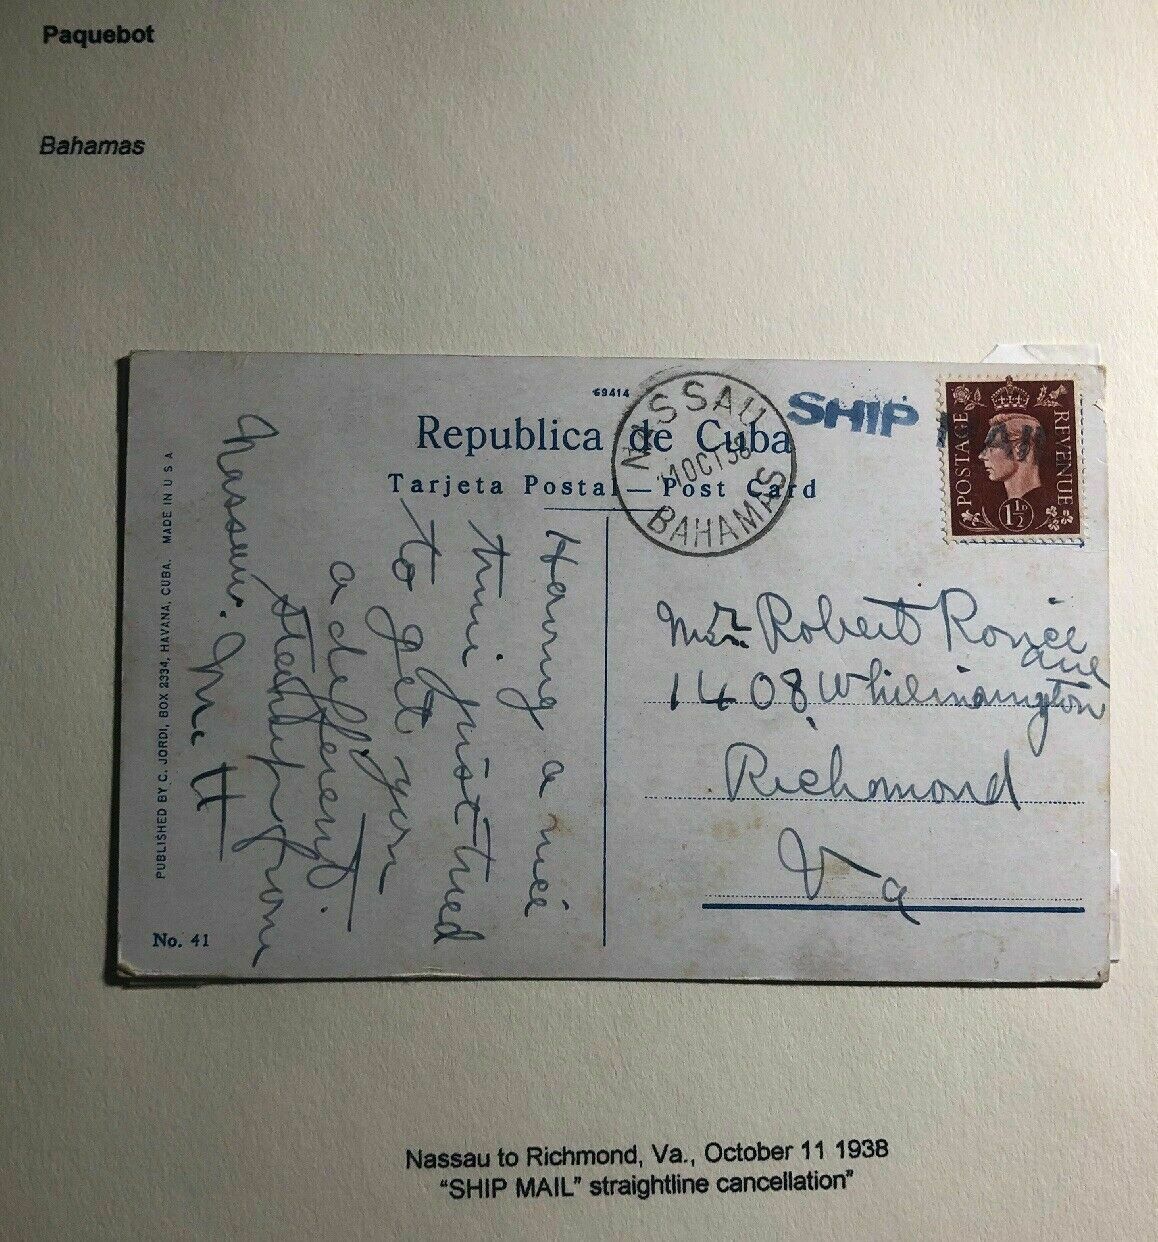 Paquebot
Bahamas
69414
Republica de Cuba
Tarjeta Postal — Post Card
NASSAU
11 OCT 38
BAHAMAS
SHIP MAIL
POSTAGE
REVENUE
1½D
Having a nice
time just tried
to get you
a different
steamship from
Nassau.
Mr. Robert
1408 Whilmington
ave
Richmond
Va
PUBLISHED BY C. JORDI, BOX 2334, HAVANA, CUBA. MADE IN U S A
No. 41
Nassau to Richmond, Va., October 11 1938
"SHIP MAIL" straightline cancellation"